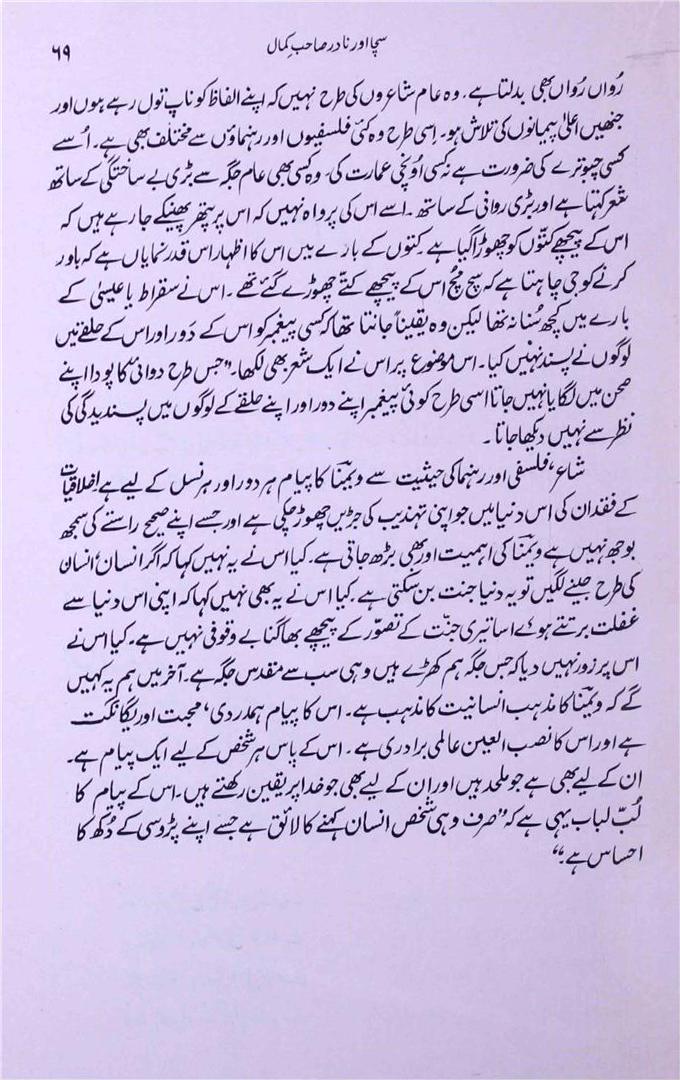 سچا اور نادر صاحبِ کمال
۶۹
رُواں رُواں بھی بدلتا ہے۔ وہ عام شاعروں کی طرح نہیں کہ اپنے الفاظ کو ناپ تول رہے ہوں اور
جنھیں اعلیٰ پیمانوں کی تلاش ہو۔ اِسی طرح وہ کئی فلسفیوں اور رہنماؤں سے مختلف بھی ہے۔ اُسے
کسی چبوترے کی ضرورت ہے نہ کسی اونچی عمارت کی، وہ کسی بھی عام جگہ سے بڑی بے ساختگی کے ساتھ
شعر کہتا ہے اور بڑی روانی کے ساتھ۔ اسے اس کی پرواہ نہیں کہ اس پر پتھر پھینکے جا رہے ہیں کہ
اس کے پیچھے کتّوں کو چھوڑا گیا ہے۔ کتوں کے بارے میں اس کا اظہار اس قدر نمایاں ہے کہ باور
کرنے کو جی چاہتا ہے کہ سچ مُچ اس کے پیچھے کتّے چھوڑے گئے تھے۔ اس نے سقراط یا عیسیٰ کے
بارے میں کچھ سُنا نہ تھا لیکن وہ یقیناً جانتا تھا کہ کسی پیغمبر کو اس کے دَور اور اس کے حلقے میں
لوگوں نے پسند نہیں کیا۔ اس موضوع پر اس نے ایک شعر بھی لکھا۔ "جس طرح دوائی کا پودا اپنے
صحن میں لگایا نہیں جاتا اسی طرح کوئی پیغمبر اپنے دور اور اپنے حلقے کے لوگوں میں پسندیدگی کی
نظر سے نہیں دیکھا جاتا۔
شاعر، فلسفی اور رہنما کی حیثیت سے ویمنّا کا پیام ہر دور اور ہر نسل کے لیے ہے اخلاقیات
کے فقدان کی اس دنیا میں جو اپنی تہذیب کی جڑیں چھوڑ چکی ہے اور جسے اپنے صحیح راستے کی سمجھ
بوجھ نہیں ہے ویمنّا کی اہمیت اور بھی بڑھ جاتی ہے۔ کیا اس نے یہ نہیں کہا کہ اگر انسان، انسان
کی طرح جینے لگیں تو یہ دنیا جنت بن سکتی ہے۔ کیا اس نے یہ بھی نہیں کہا کہ اپنی اس دنیا سے
غفلت برتتے ہوئے اساتیری جنّت کے تصوّر کے پیچھے بھاگنا بے وقوفی نہیں ہے۔ کیا اس نے
اس پر زور نہیں دیا کہ جس جگہ ہم کھڑے ہیں وہی سب سے مقدس جگہ ہے۔ آخر میں ہم یہ کہیں
گے کہ ویمنّا کا مذہب انسانیت کا مذہب ہے۔ اس کا پیام ہمدردی، محبت اور یگانگت
ہے اور اس کا نصب العین عالمی برادری ہے۔ اس کے پاس ہر شخص کے لیے ایک پیام ہے۔
ان کے لیے بھی ہے جو ملحد ہیں اور ان کے لیے بھی جو خدا پر یقین رکھتے ہیں۔ اس کے پیام کا
لُبِّ لباب یہی ہے کہ "صرف وہی شخص انسان کہنے کا لائق ہے جسے اپنے پڑوسی کے دُکھ کا
احساس ہے۔"